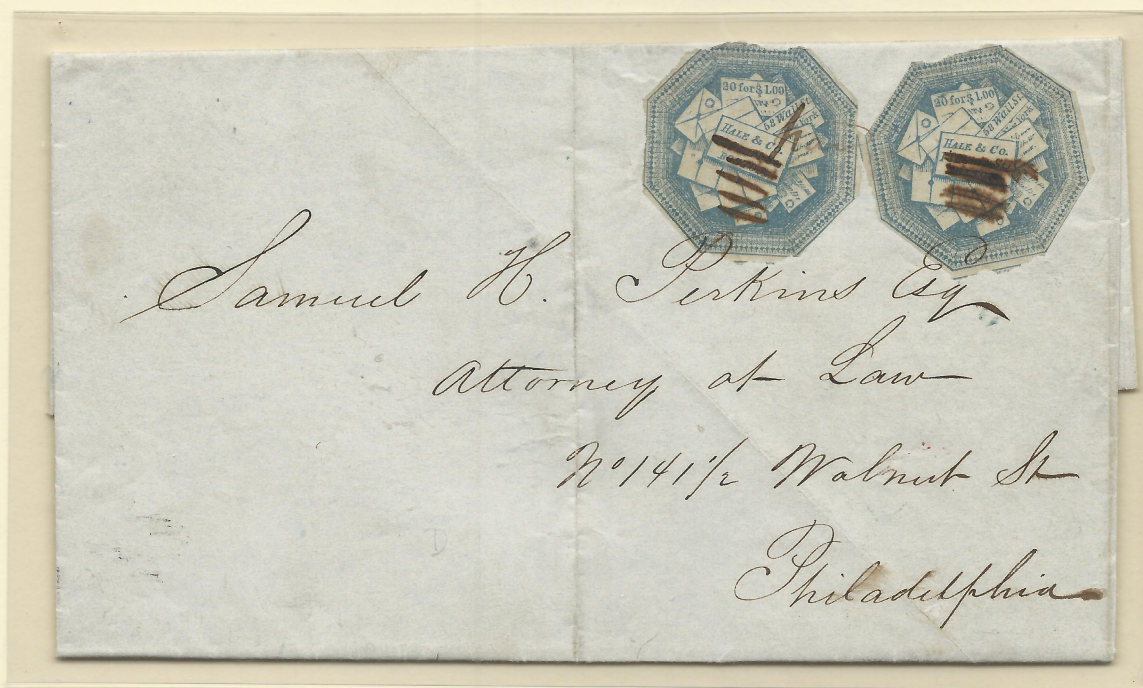 20 for $1.00
58 Wall St
York
HALE & Co.
20 for $1.00
58 Wall St
York
HALE & Co.
Samuel H. Perkins Esq
Attorney at Law
No 141 1/2 Walnut St
Philadelphia